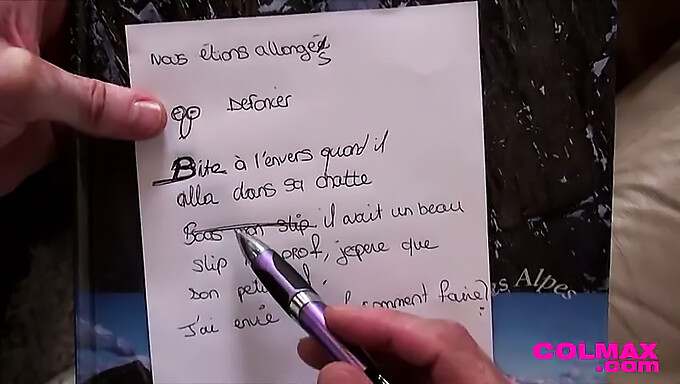 Nous étions allongés
Defoncer
Bite à l'envers quand il
alla dans sa chatte
il avait un beau
slip prof, jepere que
son peti
J'ai envie comment faire?
es Alpes
COLMAX
.com